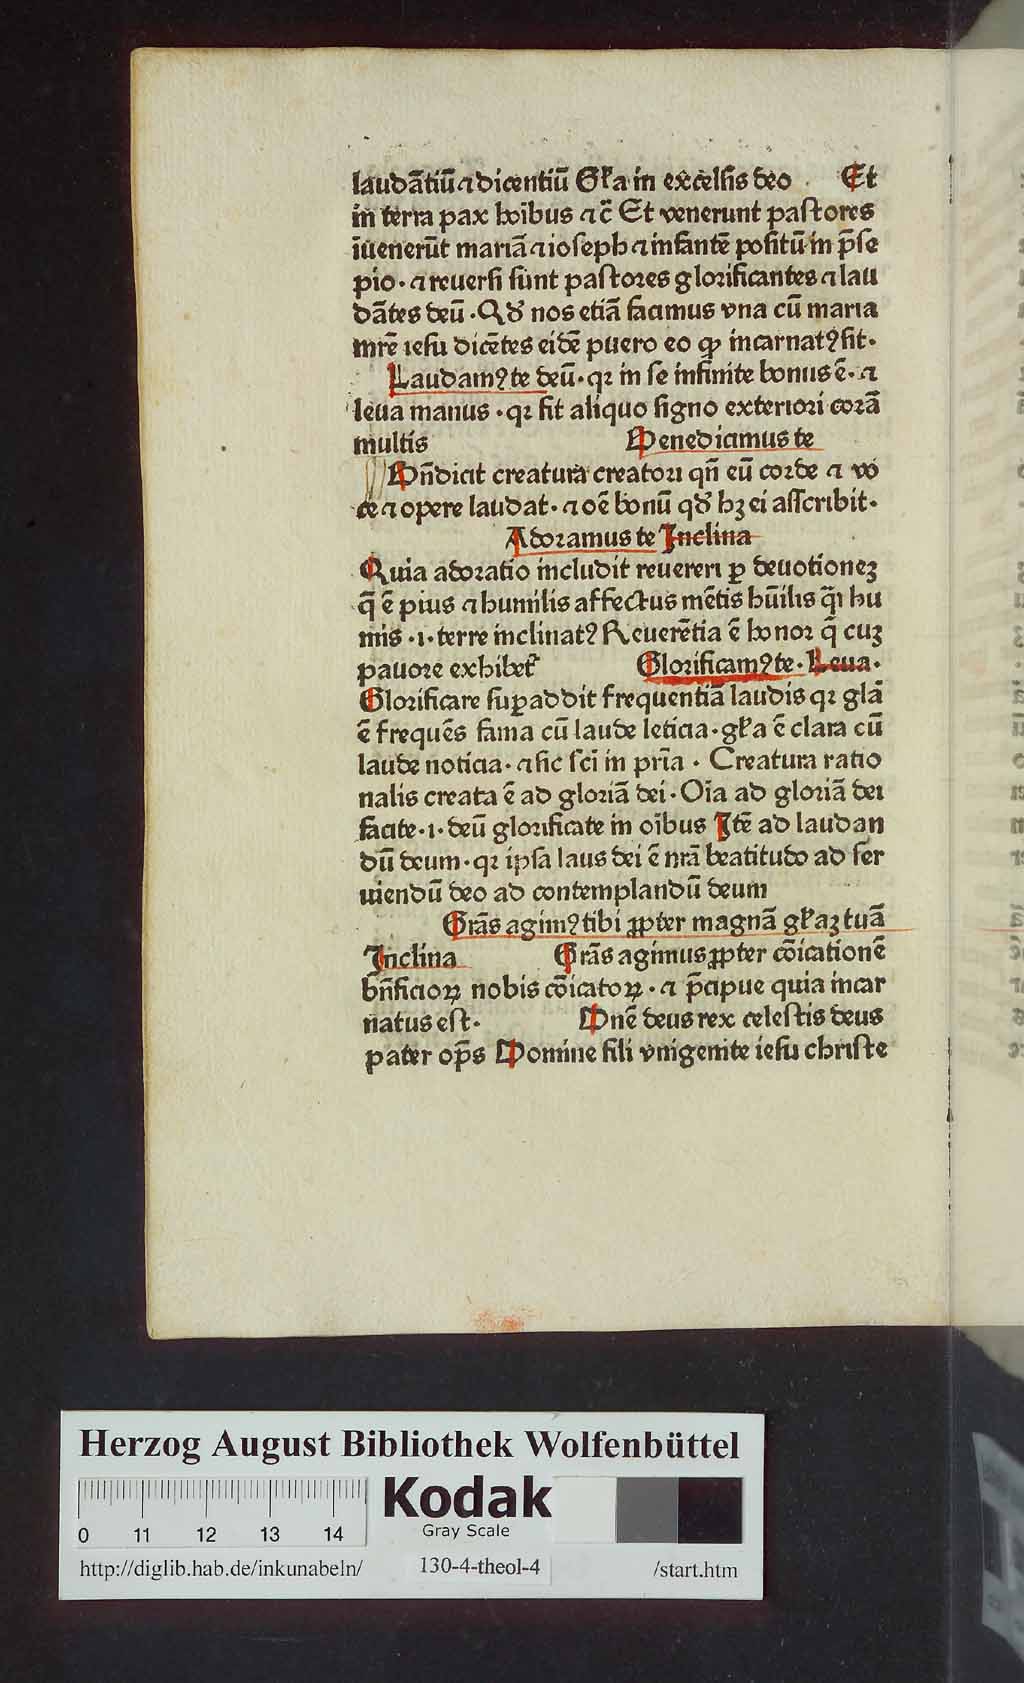 laudātiū ⁊ dicentiū Gl'a in excelsis deo . Et
in terra pax hoībus ⁊ c̄ Et venerunt pastores
īuenerūt mariā ⁊ ioseph ⁊ infantē positū in p̄se
pio · ⁊ reuersi sunt pastores glorificantes ⁊ lau
dātes deū · Qd' nos etiā facimus vna cū maria
mr̄e iesu dicētes eidē puero eo ꝙ incarnatꝰ sit ·
Laudamꝰ te deū · qꝛ in se infinite bonus ē · ⁊
leua manus · qꝛ fit aliquo signo exteriori corā
multis Benedicimus te
Bn̄dicit creatura creatori qn̄ eū corde ⁊ vo
ce ⁊ opere laudat · ⁊ oē bonū qd' hꝫ ei asscribit ·
Adoramus te Inclina
Quia adoratio includit reuereri ꝑ deuotionez
q̄ ē pius ⁊ humilis affectus mētis hūilis q̄i hu
mis · i · terre inclinatꝰ Reuerētia ē honor q̄ cuz
pauore exhibet' Glorificamꝰ te · Leua ·
Glorificare suꝑaddit frequentiā laudis qꝛ glā
ē frequēs fama cū laude leticia · gl'a ē clara cū
laude noticia · ⁊ sic sc̄i in pr̄ia · Creatura ratio
nalis creata ē ad gloriā dei · Oīa ad gloriā dei
facite · i · deū glorificate in oībus Itē ad laudan
dū deum · qꝛ ipsa laus dei ē nr̄a beatitudo ad ser
uiendū deo ad contemplandū deum
Grās agimꝰ tibi ꝓpter magnā gl'aꝫ tuā
Inclina Grās agimus ꝓpter cōicationē
bn̄ficioꝝ nobis cōicatoꝝ · ⁊ p̄cipue quia incar
natus est · Dn̄e deus rex celestis deus
pater op̄s Domine fili vnigenite iesu christe
Herzog August Bibliothek Wolfenbüttel
Kodak
Gray Scale
0 11 12 13 14
http://diglib.hab.de/inkunabeln/ 130-4-theol-4 /start.htm